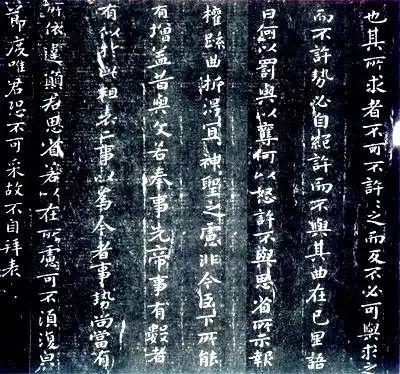 也其所求者不可不許々之而反不必可與求之
而不許勢必自絕許而不與其曲在己里語
曰何以罰與以奪何以怒許不與思省所示報
權疏曲折得宜神聖之慮非今臣下所能
有增益昔與文若奉事先帝事有數者
有似於此粗表二事以為今者事勢尚當有
所依違願君思省若以在所慮可不須復皃
節度唯君恐不可采故不自拜表